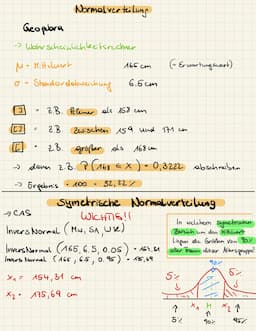 Normalverteilung
Geogebra
→ Wahrscheinlichkeitsrechner
μ - Mittelwert 165 cm (= Erwartungswert)
σ - Standardabweichung 6.5 cm
z.B. kleiner als 158 cm
z.B. zwischen 159 und 171 cm
z.B. größer als 168 cm
→ dann z.B. P(168 ≤ X) = 0,3222 abschreiben
→ Ergebnis · 100 = 32,22 %
Symetrische Normalverteilung
→ CAS WICHTIG!!
Invers Normal (MW, SA, WK)
Invers Normal (165, 6.5, 0.05) =
Invers Normal (165, 6.5, 0.95) =
X₁ = 154,31 cm
X₂ = 175,69 cm
In welchem symetrischen
Bereich um den Mittelwert
liegen die Größen von 90%
aller Frauen dieser Altersgruppe?
5% 5%
X₁ μ X₂
5% 90% 95%